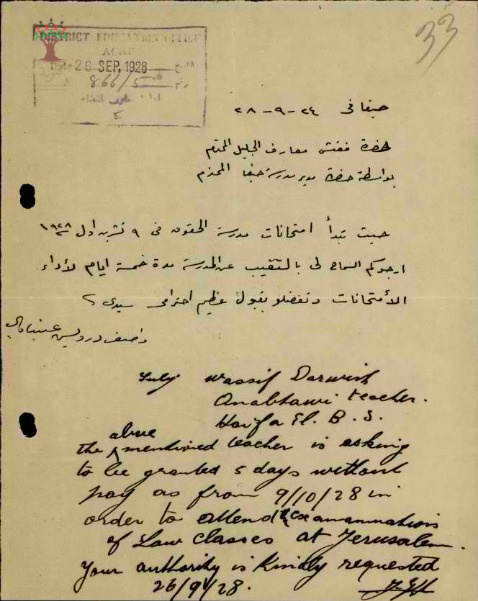 33
DISTRICT EDUCATION OFFICE
ACRE
Date 28 SEP. 1928
866/5
حيفا في ٢٤-٩-٢٨
حضرة مفتش معارف الجليل المحترم
بواسطة حضرة مدير مدرسة حيفا المحترم
حيث تبدأ امتحانات مدرسة الحقوق في ٩ تشرين اول ١٩٢٨
ارجوكم السماح لي بالتغيب عن المدرسة مدة خمسة ايام لأداء
الأمتحانات وتفضلو بقبول عظيم احترامي سيدي
واصف درويش عنبتاوي
Wassif Darwish
Anabtawi teacher.
Haifa El. B. S.
the above mentioned teacher is asking
to be granted 5 days without
pay as from 9/10/28 in
order to attend examinations
of Law classes at Jerusalem.
Your authority is kindly requested
26/9/28.